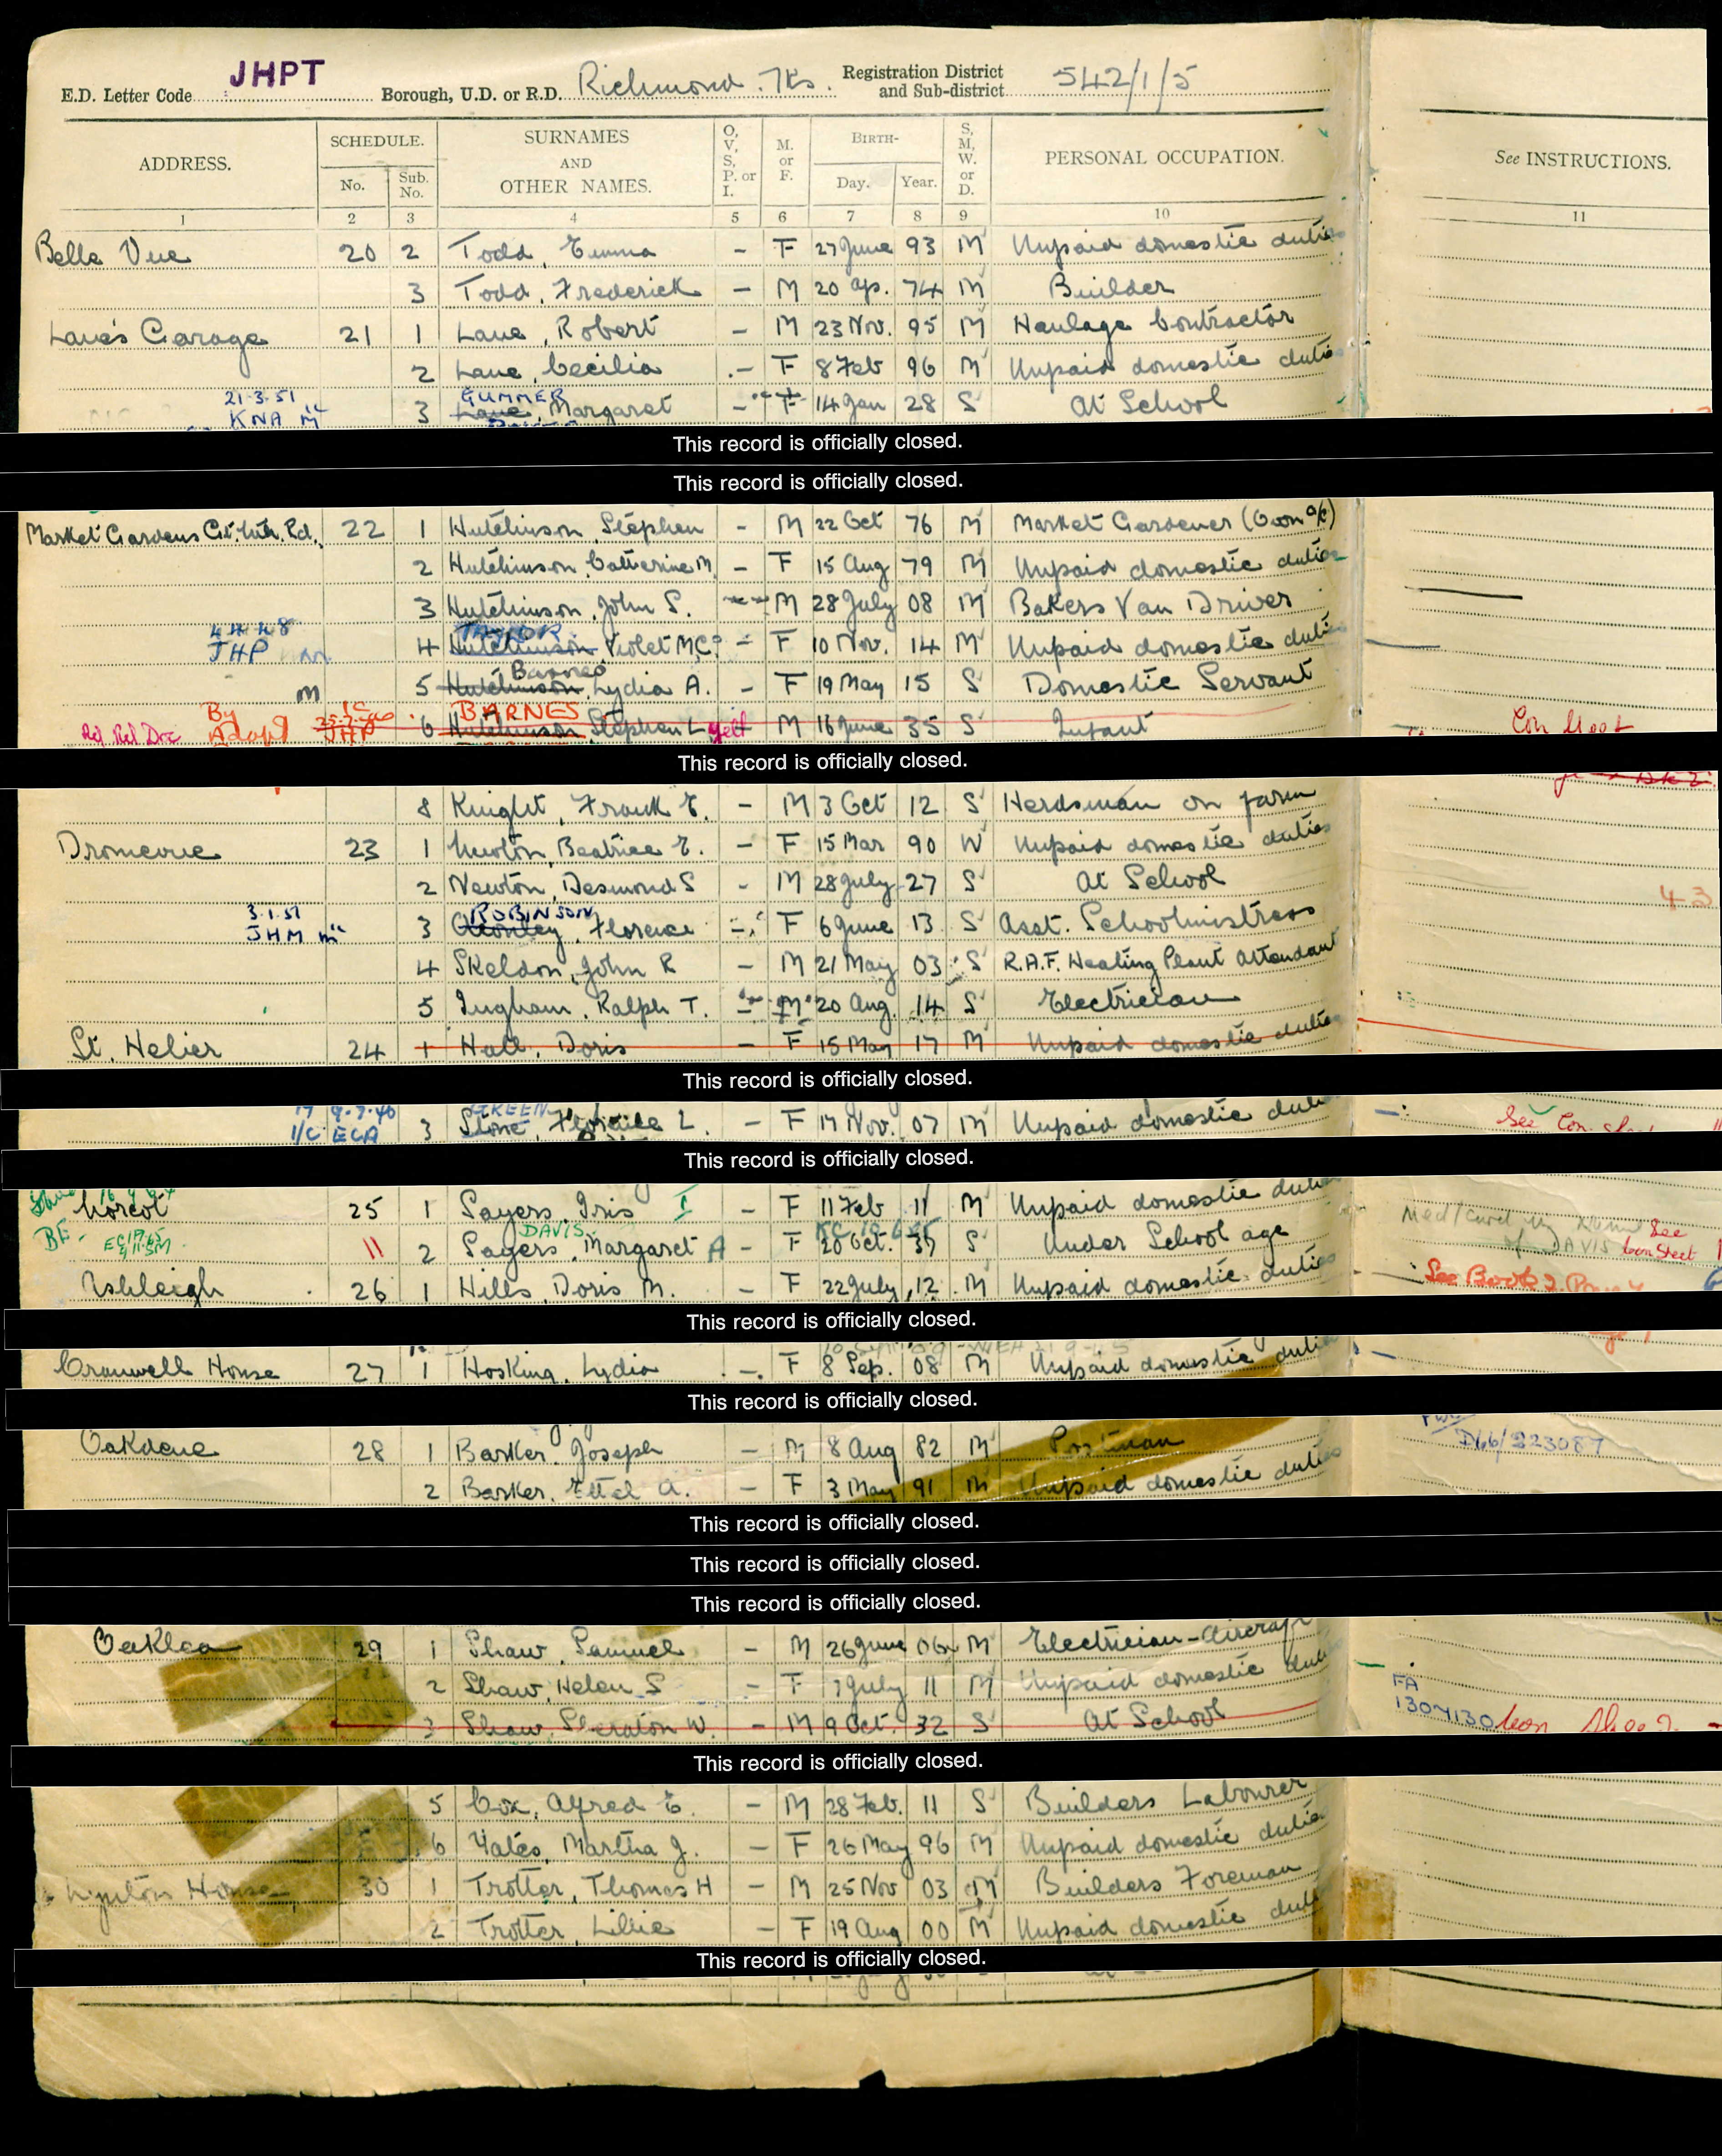 E.D. Letter Code JHPT Borough, U.D. or R.D. Richmond. Yks. Registration District and Sub-district 542/1/5
ADDRESS. SCHEDULE. No. Sub. No. SURNAMES AND OTHER NAMES. O, V, S, P. or I. M. or F. BIRTH- Day. Year. S, M, W. or D. PERSONAL OCCUPATION. See INSTRUCTIONS.
1 2 3 4 5 6 7 8 9 10 11
Belle Vue 20 2 Todd, Emma - F 27 June 93 M Unpaid domestic duties
3 Todd, Frederick - M 20 Ap. 74 M Builder
Lane's Garage 21 1 Lane, Robert - M 23 Nov. 95 M Haulage Contractor
2 Lane, Cecilia - F 8 Feb 96 M Unpaid domestic duties
21.3.51 GUMMER
KNA 3 Lane, Margaret - F 14 Jan 28 S At School
This record is officially closed.
This record is officially closed.
Market Gardens 22 1 Hutchinson, Stephen - M 22 Oct 76 M Market Gardener (Own a/c)
2 Hutchinson, Catherine M. - F 15 Aug 79 M Unpaid domestic duties
3 Hutchinson, John S. M 28 July 08 M Bakers Van Driver
4.4.48 TAYLOR
JHP 4 Hutchinson Violet M.C. - F 10 Nov. 14 M Unpaid domestic duties
Barnes
M 5 Hutchinson, Lydia A. - F 19 May 15 S Domestic Servant
By BARNES
Adopt JHP 6 Hutchinson, Stephen L M 16 June 35 S Infant
This record is officially closed.
8 Knight, Frank E. - M 3 Oct 12 S Herdsman on farm
Dromevue 23 1 Newton, Beatrice E. - F 15 Mar 90 W Unpaid domestic duties
2 Newton, Desmond S - M 28 July 27 S At School
43
3.1.51 ROBINSON
JHM 3 Florence F 6 June 13 S Asst. Schoolmistress
4 Skeldon, John R - M 21 May 03 S R.A.F. Heating Plant Attendant
5 Ingham, Ralph T. M 20 Aug. 14 S Electrician
St. Helier 24 1 Hall, Doris - F 15 May 17 M Unpaid domestic duties
This record is officially closed.
GREEN
I/C ECA 3 Stone, L. - F 17 Nov. 07 M Unpaid domestic duties See Con.
This record is officially closed.
25 1 Sayers, Iris I - F 11 Feb 11 M Unpaid domestic duties
DAVIS
11 2 Sayers, Margaret A - F 20 Oct. 37 S Under School age of DAVIS See Con Sheet
Ashleigh 26 1 Hills, Doris M. - F 22 July 12 M Unpaid domestic duties See Book 2
This record is officially closed.
Cranwell House 27 1 Hosking, Lydia - F 8 Sep. 08 M Unpaid domestic duties
This record is officially closed.
Oakdene 28 1 Barker, Joseph - M 8 Aug 82 M Postman D66/223087
2 Barker, Ethel A. - F 3 May 91 M Unpaid domestic duties
This record is officially closed.
This record is officially closed.
This record is officially closed.
Oaklea 29 1 Shaw, Samuel - M 26 June 06 M Electrician-Aircraft
2 Shaw, Helen S - F 7 July 11 M Unpaid domestic duties
FA
3 Shaw, Sheraton W. - M 9 Oct. 32 S At School 1304130 Con
This record is officially closed.
5 Cox, Alfred E. - M 28 Feb. 11 S Builders Labourer
6 Yates, Martha J. - F 26 May 96 M Unpaid domestic duties
House 30 1 Trotter, Thomas H - M 25 Nov 03 M Builders Foreman
2 Trotter, Lillie - F 19 Aug 00 M Unpaid domestic duties
This record is officially closed.